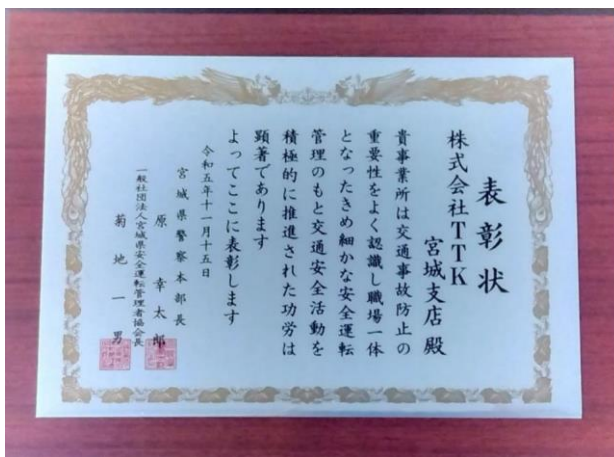 表彰状
株式会社TTK
宮城支店殿
貴事業所は交通事故防止の
重要性をよく認識し職場一体
となったきめ細かな安全運転
管理のもと交通安全活動を
積極的に推進された功労は
顕著であります
よってここに表彰します
令和五年十一月十五日
宮城県警察本部長
原幸太郎
一般社団法人宮城県安全運転管理者協会長
菊地一男